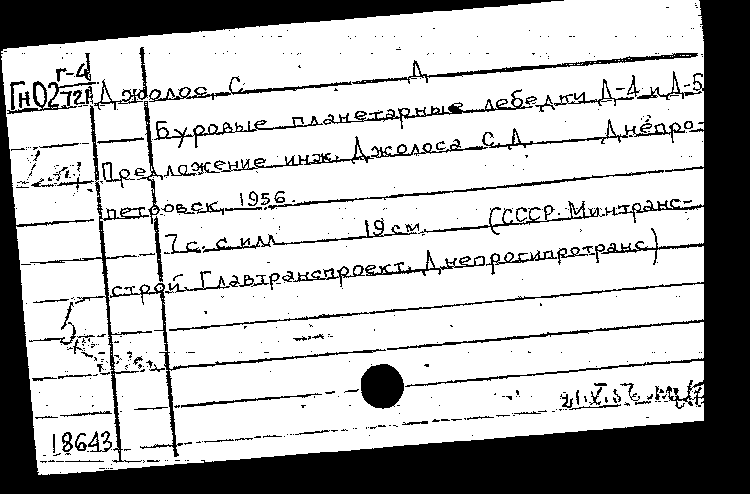 Г-4
ГнО2 721 Джолос, С. Д.
Буровые планетарные лебедки Д-4 и Д-5
Предложение инж. Джолоса С. Д. Днепро-
петровск, 1956.
7 с. с илл 19 см. (СССР. Минтранс-
строй. Главтранспроект. Днепрогипротранс)
5
18643